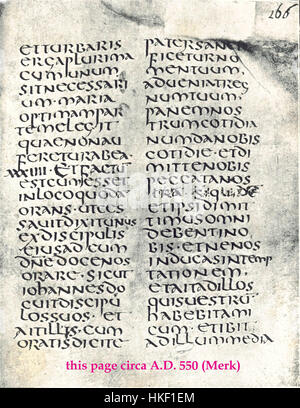 166
ETTURBARIS
ERGAPLURIMA
CUMUNUM
SITNECESSARI
UM· MARIA
OPTIMAMPAR
TEMELEGIT
QUAENONAU
FERETURABEA
ETFACTU
ESTCUMESSET
INLOCOQUODA
ORANS· UTCES
SAUITDIXITUNUS
EXDISCIPULIS
EIUSADEUM
DNEDOCENOS
ORARE· SICUT
IOHANNESDO
CUITDISCIPU
LOSSUOS· ET
AITILLIS· CUM
ORATISDICITE
PATERSANC
FICETURNO
MENTUUM,
ADUENIATREG
NUMTUUM,
PANEMNOS
TRUMCOTIDIA
NUMDANOBIS
COTIDIE· ETDI
MITTENOBIS
PECCATANOS
TRA· SIQUIDE
ETIPSIDIMIT
TIMUSOMNI
DEBENTINO
BIS· ETNENOS
INDUCASINTEMP
TATIONEM,
ETAITADILLOS
QUISUESTRU
HABEBITAMI
CUM· ETIBIT
ADILLUMMEDIA
this page circa A.D. 550 (Merk)
alamy stock photo
HKF1EM
www.alamy.com